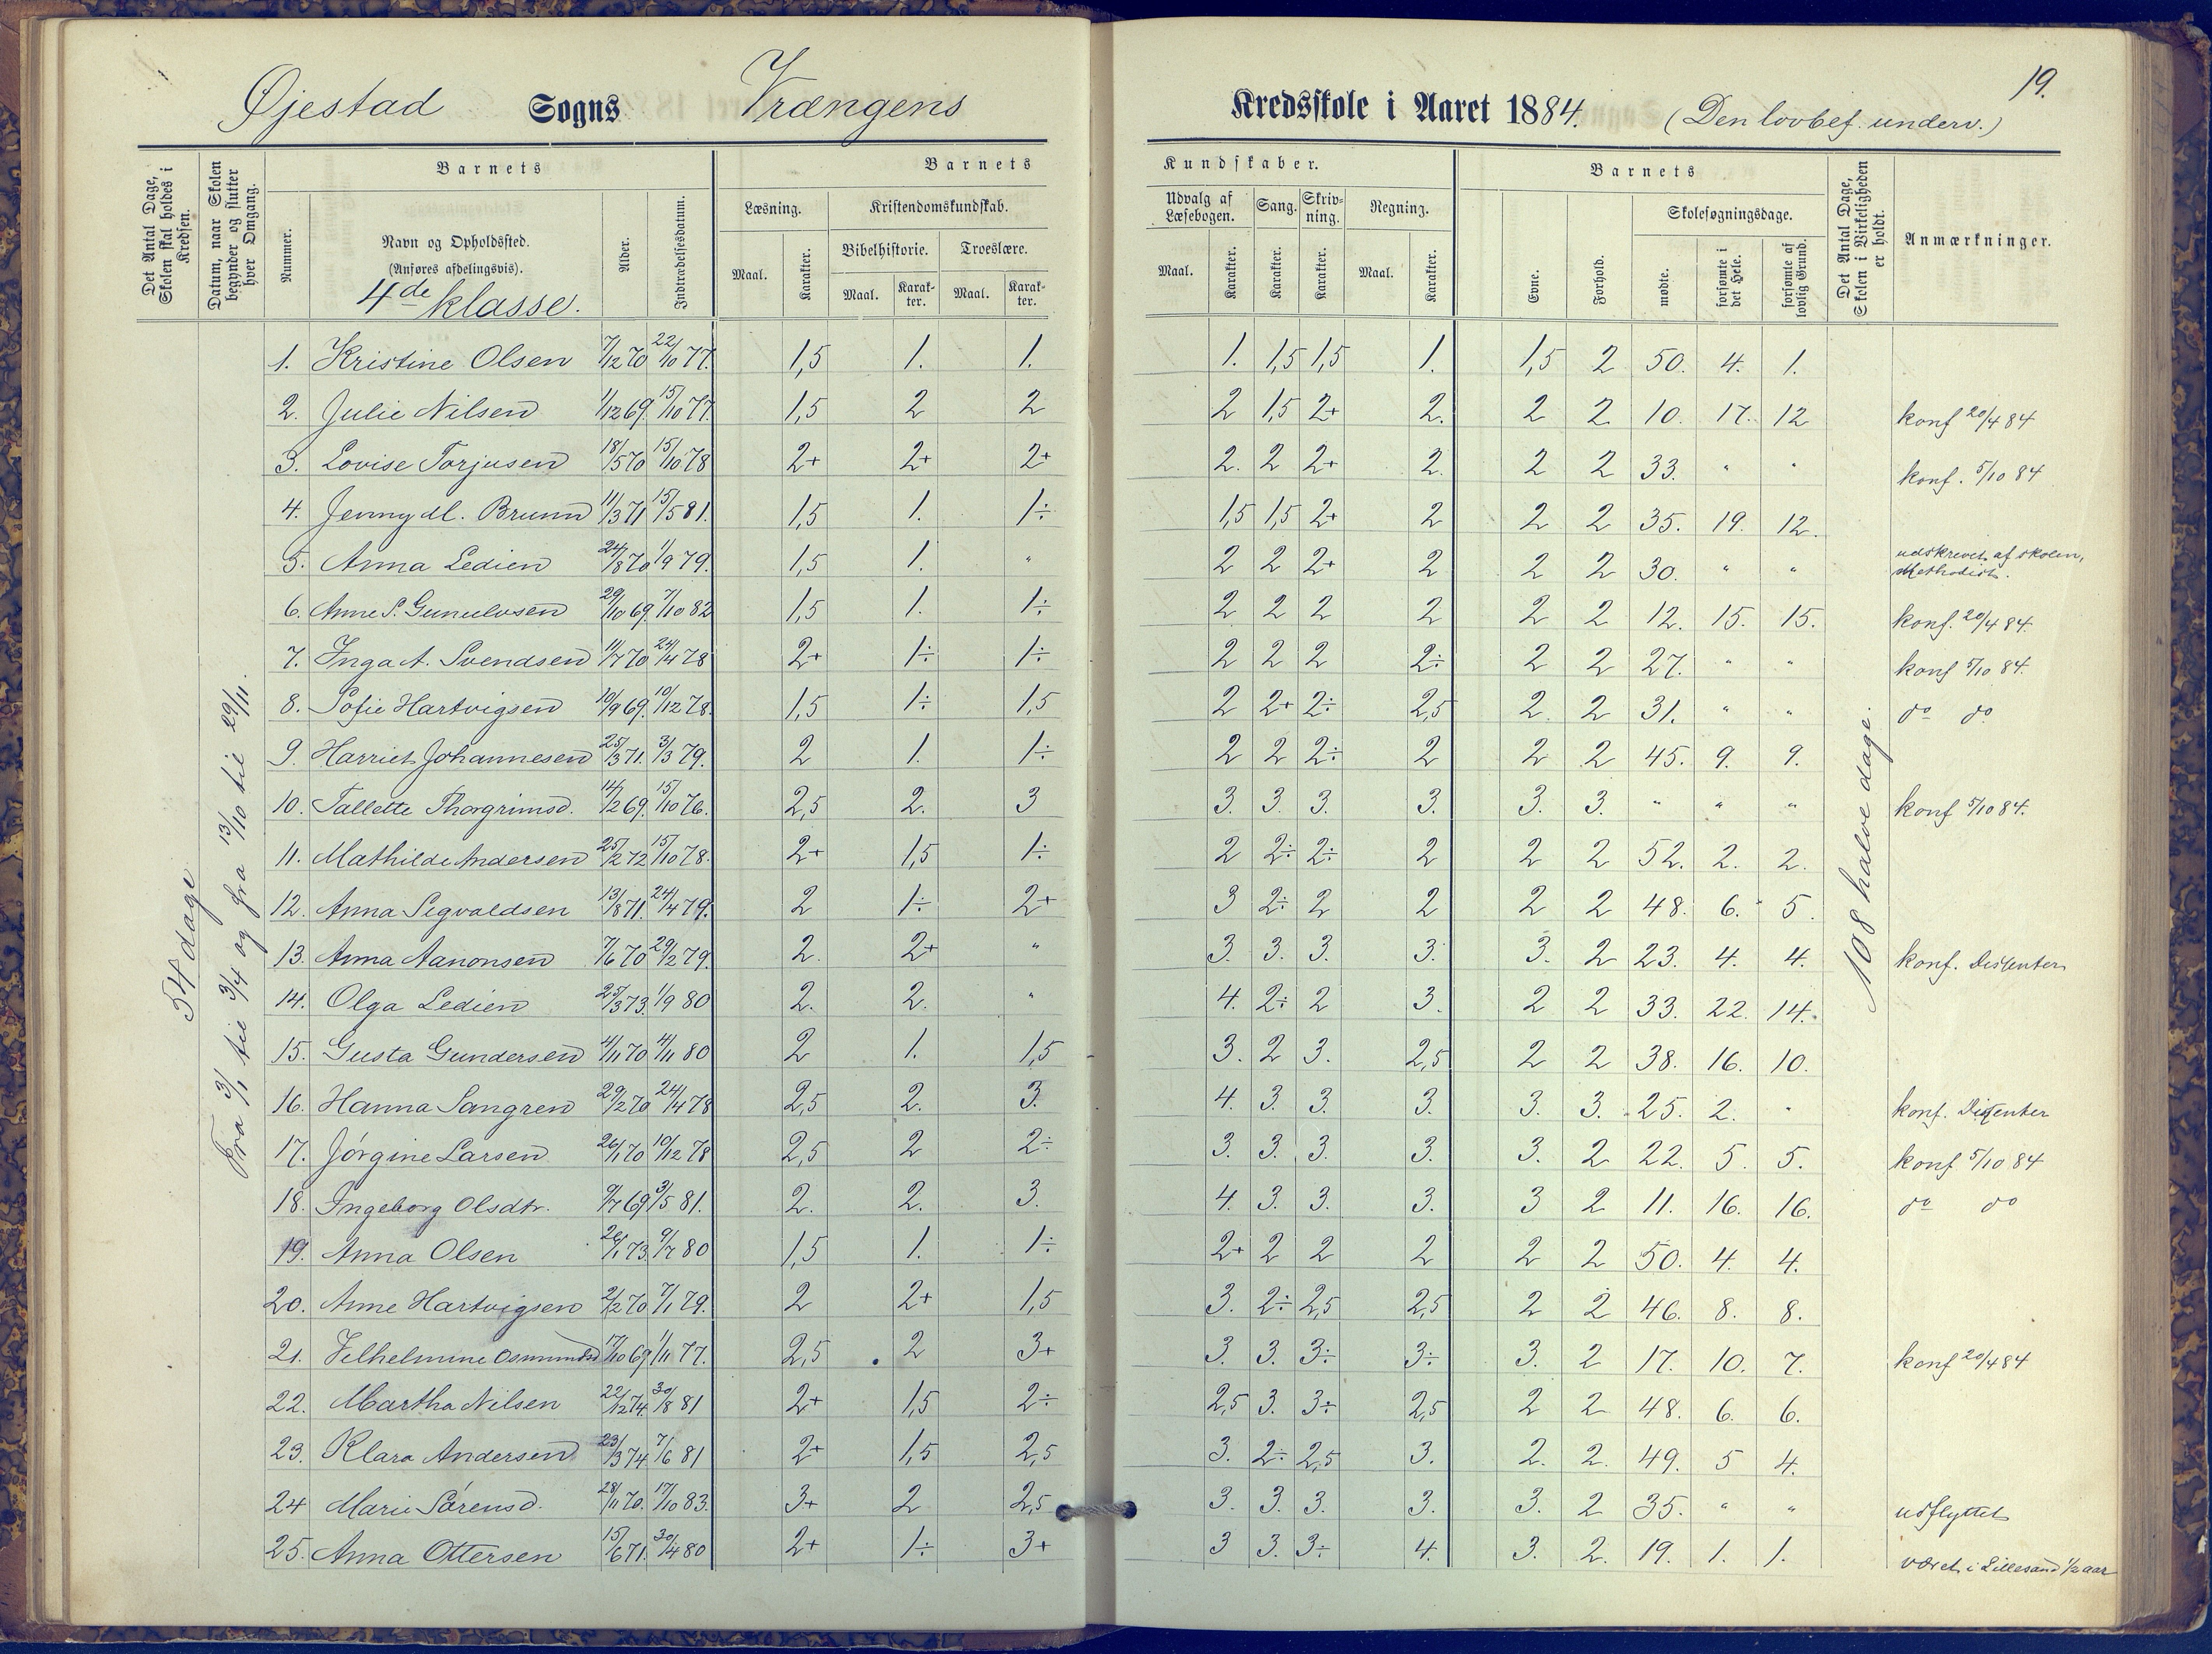 19.
Øjestad Sogns Vrængens Kredsskole i Aaret 1884. (Den lovbef. underv.)
Det Antal Dage, Skolen skal holdes i Kredsen.
Datum, naar Skolen begynder og slutter hver Omgang.
Barnets
Nummer.
Navn og Opholdssted.
(Anføres afdelingsvis).
4de klasse.
Alder.
Indtrædelsesdatum.
Barnets Kundskaber.
Læsning.
Maal. Karakter.
Kristendomskundskab.
Bibelhistorie. Troeslære.
Maal. Karakter. Maal. Karakter.
Udvalg af Læsebogen. Sang. Skrivning. Regning.
Maal. Karakter. Karakter. Karakter. Maal. Karakter.
Barnets
Evne. Forhold.
Skolesøgningsdage.
mødte. forsømte i det Hele. forsømte af lovlig Grund.
Det Antal Dage, Skolen i Virkeligheden er holdt.
Anmærkninger.
54 dage
Fra 3/1 til 3/4 og fra 13/10 til 29/11.
108 halve dage.
1. Kristine Olsen 7/12 70 22/10 77. 1,5 1. 1. 1. 1,5 1,5 1. 1,5 2 50. 4. 1.
2. Julie Nilsen 1/12 69. 15/10 77. 1,5 2 2 2 1,5 2+ 2. 2 2 10. 17. 12 konf 20/4 84
3. Lovise Torjusen 18/5 70 15/10 78 2+ 2+ 2+ 2. 2 2+ 2. 2 2 33. " " konf. 5/10 84
4. Jenny M. Brunn 11/3 71 15/5 81. 1,5 1. 1÷ 1,5 1,5 2+ 2 2 2 35. 19. 12.
5. Anna Ledien 24/8 70 1/9 79. 1,5 1. " 2 2 2+ 2 2 2 30. " " udskrevet af skolen, Methodist.
6. Anne S. Gunulvsen 29/10 69. 7/10 82 1,5 1. 1÷ 2 2 2 2 2 2 12. 15. 15. konf. 20/4 84.
7. Inga A. Svendsen 11/7 70 24/4 78 2+ 1÷ 1÷ 2 2 2 2÷ 2 2 27. " " konf 5/10 84.
8. Sofie Hartvigsen 10/9 69. 10/12 78. 1,5 1÷ 1,5 2 2+ 2÷ 2,5 2. 2 31. " " do do
9. Harriet Johannesen 25/3 71. 3/3 79. 2 1. 1÷ 2 2 2÷ 2 2 2 45. 9. 9.
10. Tallette Thorgrimsd. 14/2 69. 15/10 76. 2,5 2. 3 3. 3. 3. 3. 3. 3. " " " konf 5/10 84.
11. Mathilde Andersen 25/2 72 15/10 78. 2+ 1,5 1÷ 2 2÷ 2÷ 2 2 2 52. 2. 2.
12. Anna Segvaldsen 13/8 71. 24/4 79. 2 1÷ 2+ 3 2÷ 2 2 2 2 48. 6. 5.
13. Anna Aanonsen 7/6 70 29/2 79. 2. 2+ " 3. 3. 3. 3. 3. 2 23. 4. 4. konf. Dissenter
14. Olga Ledien 25/3 73. 1/9 80 2. 2. " 4. 2÷ 2 3. 2 2 33. 22. 14.
15. Gusta Gundersen 4/11 70 4/11 80 2 1. 1,5 3. 2 3. 2,5 2 2 38. 16. 10.
16. Hanna Sangren 29/2 70 24/4 78 2,5 2. 3. 4. 3. 3. 3. 3. 3. 25. 2. " konf. Dissenter
17. Jørgine Larsen 26/1 70 10/12 78 2,5 2 2÷ 3. 3. 3. 3. 3. 2 22. 5. 5. konf 5/10 84
18. Ingeborg Olsdtr. 9/7 69 3/5 81. 2. 2. 3. 4. 3. 3. 3. 3 2 11. 16. 16. do do
19. Anna Olsen 26/1 73. 9/7 80 1,5 1. 1÷ 2+ 2 2 2 2 2 50. 4. 4.
20. Anne Hartvigsen 2/2 70 7/1 79. 2 2+ 1,5 3. 2÷ 2,5 2,5 2 2 46. 8. 8.
21. Velhelmine Osmundsd 17/10 69 1/11 77. 2,5 2 3+ 3. 3. 3÷ 3÷ 3. 2 17. 10. 7. konf 20/4 84
22. Martha Nilsen 22/12 74. 30/8 81 2+ 1,5 2÷ 2,5 3. 3÷ 2,5 2 2 48. 6. 6.
23. Klara Andersen 23/3 74 7/6 81 2+ 1,5 2,5 3. 2÷ 2,5 3. 2. 2. 49. 5 4.
24 Marie Sørensd. 28/11 70. 17/10 83. 3+ 2 2,5 3. 3. 3. 3. 3. 2 35. " " udflyttet
25. Anna Ottersen 15/6 71. 30/4 80 2+ 1÷ 3+ 3 3. 3÷ 4. 3. 2. 19. 1. 1. været i Lillesand 1/2 aar